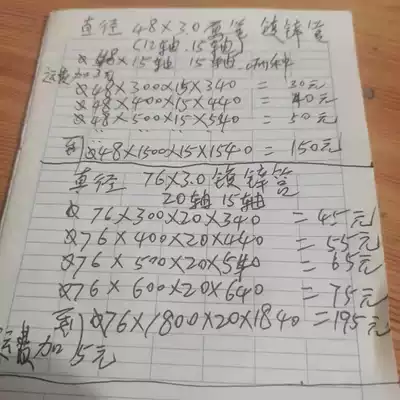 直径 48×3.0 镀锌管
(12轴.15轴)
48×15轴 15轴 两种
运费加5元
Φ48×300×15×340 = 30元
Φ48×400×15×440 = 40元
Φ48×500×15×540 = 50元
到 Φ48×1500×15×1540 = 150元
直径 76×3.0 镀锌管
20轴 15轴
Φ76×300×20×340 = 45元
Φ76×400×20×440 = 55元
Φ76×500×20×540 = 65元
Φ76×600×20×640 = 75元
到 Φ76×1800×20×1840 = 195元
运费加5元